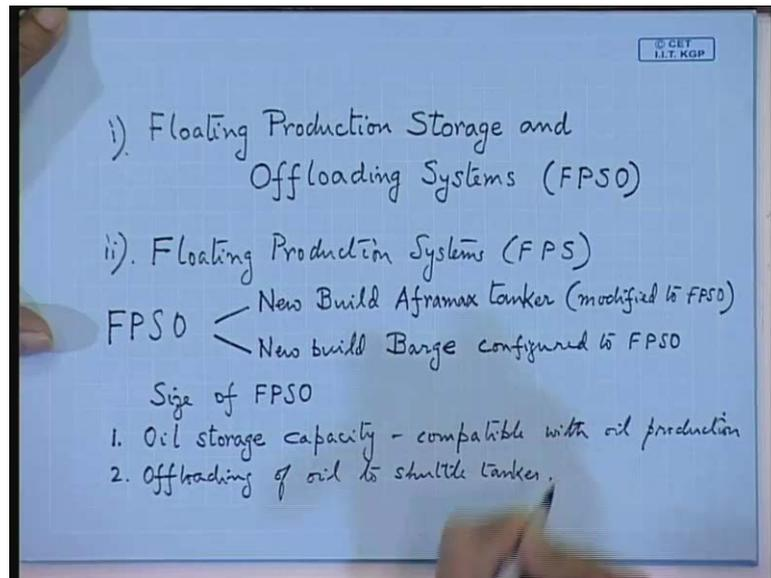 © CET
I.I.T. KGP
i). Floating Production Storage and
Offloading Systems (FPSO)
ii). Floating Production Systems (FPS)
FPSO
New Build Aframax tanker (modified to FPSO)
New build Barge configured to FPSO
Size of FPSO
1. Oil storage capacity - compatible with oil production
2. Offloading of oil to shuttle tanker.